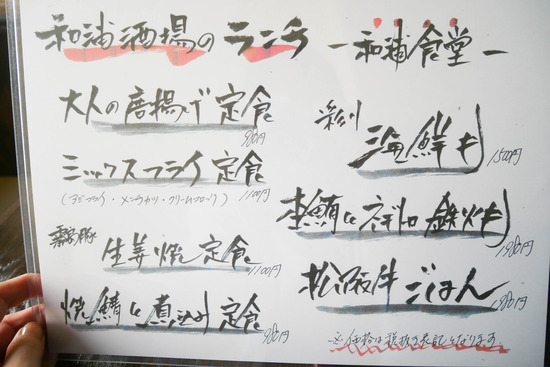 和浦酒場のランチ
ー和浦食堂ー
大人の唐揚げ定食
980円
ミックスフライ定食
(アジフライ・メンチカツ・クリームコロッケ) 1100円
霧島豚
生姜焼き定食
1100円
焼き鯖と煮込み定食
980円
彩り
海鮮丼
1500円
本鮪とネギトロ鉄火丼
1980円
松阪牛ごはん
1980円
※価格は税抜き表記となります